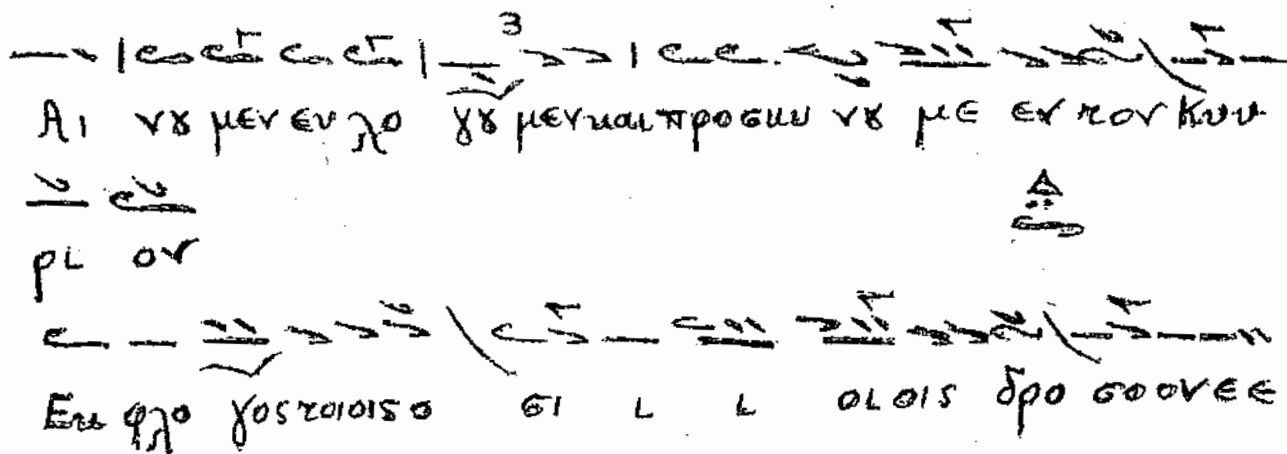 3
Αι νȣ μεν ευ λο γȣ μεν και προσκυ νȣ με εν τον Κυυ
ρι ον
Εκ φλο γος τοιοισο σι ι ι οιοις δρο σοονεε